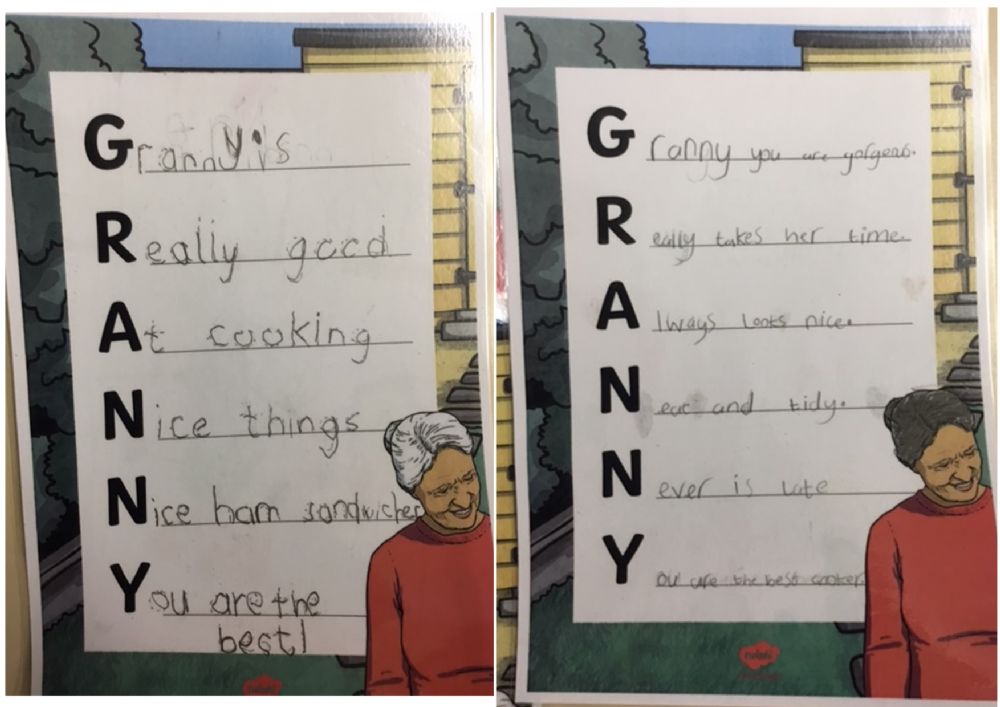 Granny's
Really good
At cooking
Nice things
Nice ham sandwiches
You are the
best!
Granny you are gorgeous.
Really takes her time.
Always looks nice.
Neat and tidy.
Never is late
You are the best cooker
twinkl